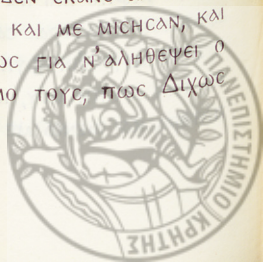 ΚΑΙ ΜΕ ΜΙCΗCΑΝ, ΚΑΙ
ΓΙΑ Ν'ΑΛΗΘΕΨΕΙ Ο
ΤΟΥC, ΠωC ΔΙΧωC
ΠΑΝΕΠΙΣΤΗΜΙΟ ΚΡΗΤΗΣ